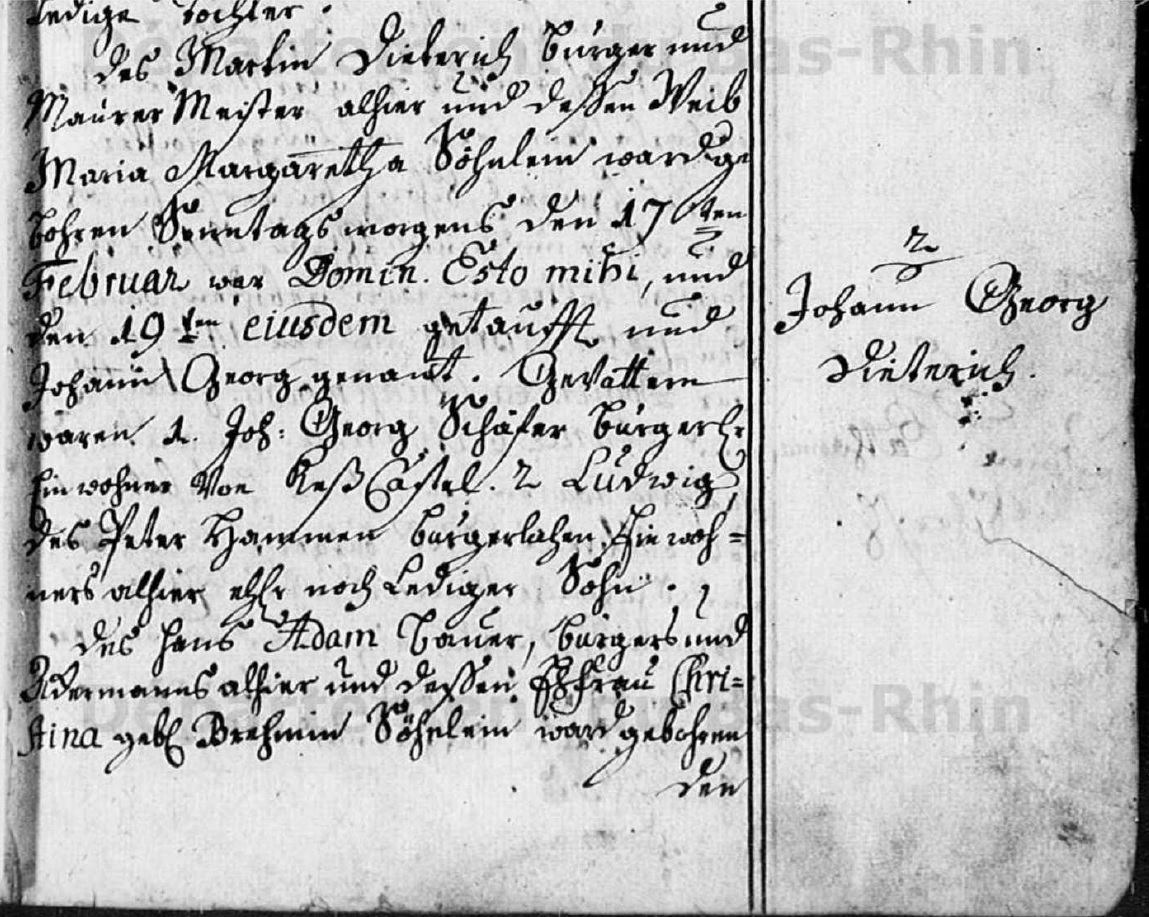 Ledige Tochter.
des Martin Dieterich burger und
Maurer Meister alhier und dessen Weib
Maria Margaretha Söhnlein ward ge
bohren Sonntags morgens den 17ten
Februar war Domin. Esto mihi, und
den 19ten eiusdem getaufft und
Johann Georg genant. Gevattern
waren 1. Joh: Georg Schäfer burgerl.
Einwohner von Keßcastel. 2 Ludwig,
des Peter Hammen burgerlichen Einwoh=
ners alhier noch Lediger Sohn.
des Hans Adam Bauer, burgers und
Ackermanns alhier und dessen Ehfrau Chri=
stina geb. Brehmin Söhnlein ward gebohren
den
2
Johann Georg
Dieterich.
Département du Bas-Rhin
Département du Bas-Rhin